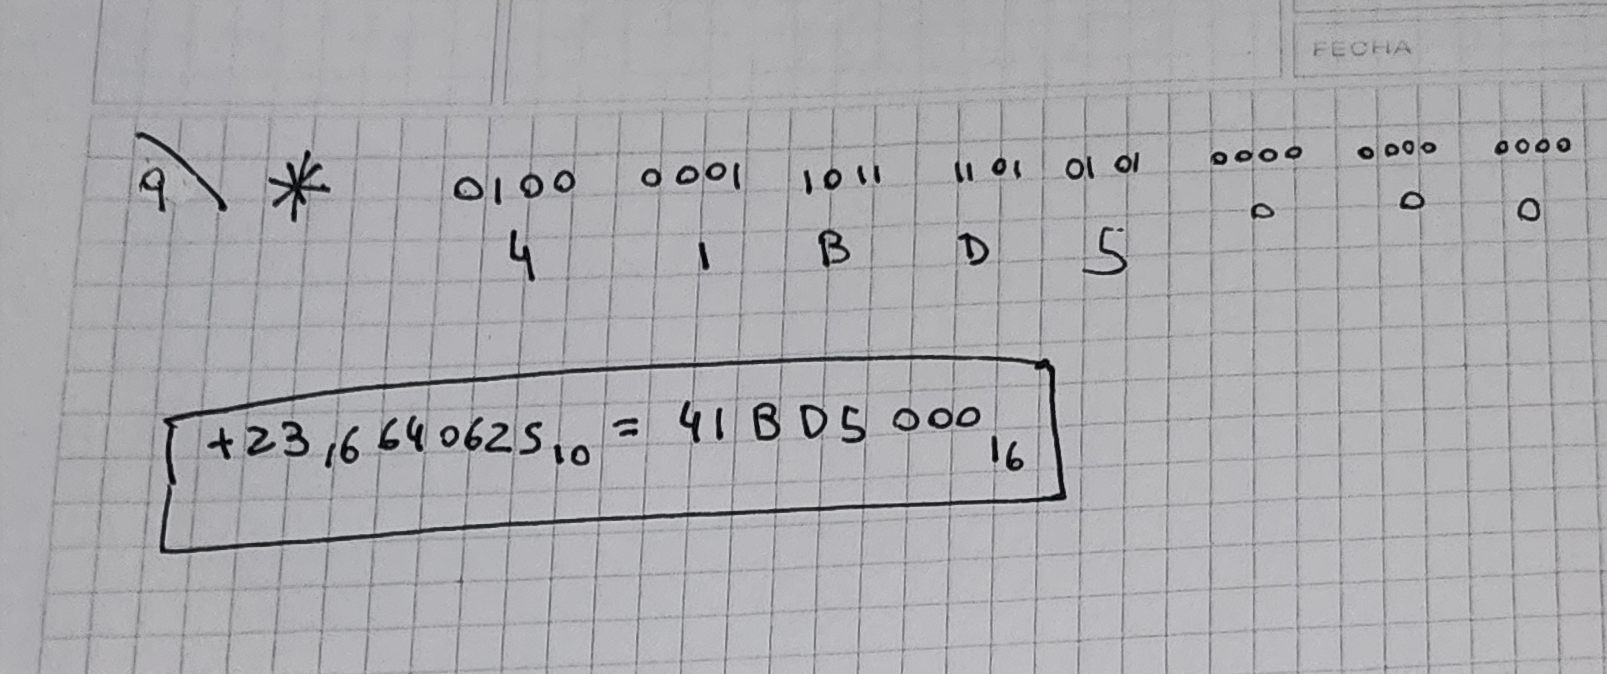 FECHA
9) * 0100 0001 1011 1101 0101 0000 0000 0000
4 1 B D 5 0 0 0
+23,6640625₁₀ = 41BD5000₁₆